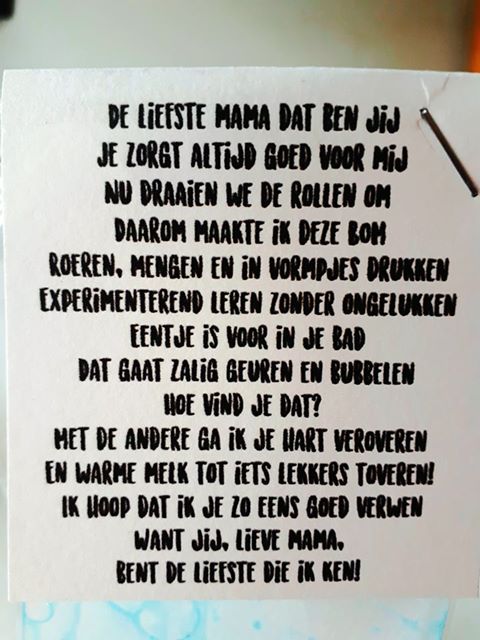 DE LIEFSTE MAMA DAT BEN JIJ
JE ZORGT ALTIJD GOED VOOR MIJ
NU DRAAIEN WE DE ROLLEN OM
DAAROM MAAKTE IK DEZE BOM
ROEREN, MENGEN EN IN VORMPJES DRUKKEN
EXPERIMENTEREND LEREN ZONDER ONGELUKKEN
EENTJE IS VOOR IN JE BAD
DAT GAAT ZALIG GEUREN EN BUBBELEN
HOE VIND JE DAT?
MET DE ANDERE GA IK JE HART VEROVEREN
EN WARME MELK TOT IETS LEKKERS TOVEREN!
IK HOOP DAT IK JE ZO EENS GOED VERWEN
WANT JIJ, LIEVE MAMA,
BENT DE LIEFSTE DIE IK KEN!